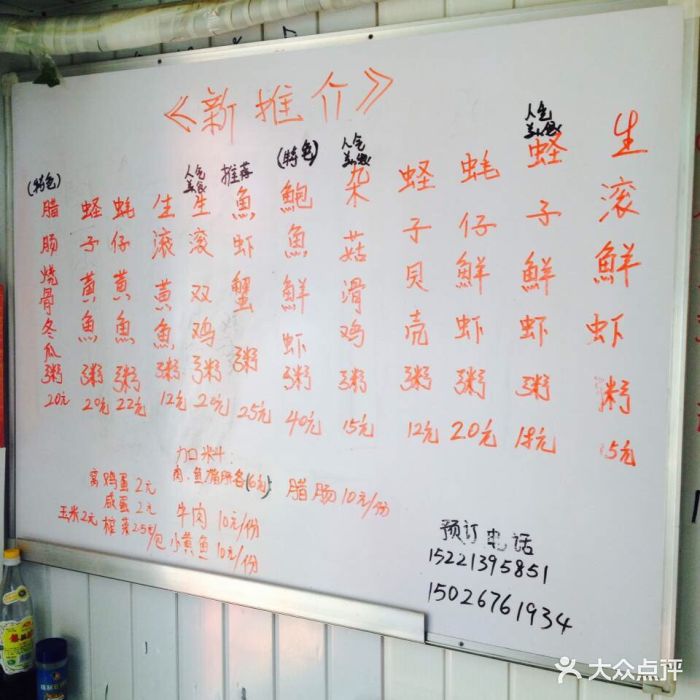 《新推介》
(特色)
腊肠烧骨冬瓜粥
20元
蛏子黄魚粥
20元
蚝仔黄魚粥
22元
生滚黄魚粥
12元
人气
美食
生滚双鸡粥
20元
推荐
魚虾蟹粥
25元
(特色)
鲍魚鮮虾粥
40元
人气
美食
杂菇滑鸡粥
15元
蛏子贝壳粥
12元
蚝仔鮮虾粥
20元
人气
美食
蛏子鮮虾粥
18元
生滚鮮虾粥
15元
加口米斗:
窝鸡蛋2元
肉、鱼、猪肝各(6元)
腊肠10元/份
咸蛋2元
牛肉10元/份
玉米2元
榨菜2.5元/包
小黄鱼10元/份
预订电话
15221395851
15026761934
大众点评